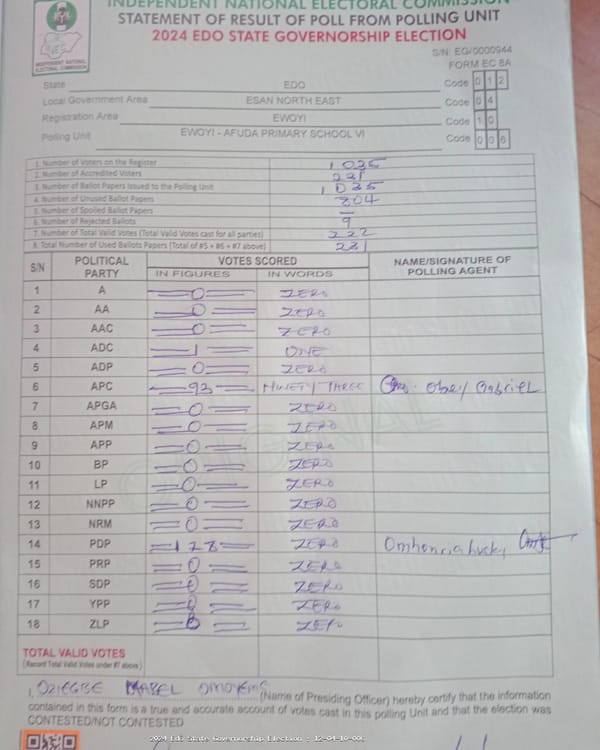 INDEPENDENT NATIONAL ELECTORAL COMMISSION
STATEMENT OF RESULT OF POLL FROM POLLING UNIT
2024 EDO STATE GOVERNORSHIP ELECTION
INDEPENDENT NATIONAL ELECTORAL COMMISSION
S/N EG/0000944
FORM EC 8A
State EDO Code 0 1 2
Local Government Area ESAN NORTH EAST Code 0 4
Registration Area EWOYI Code 1 0
Polling Unit EWOYI - AFUDA PRIMARY SCHOOL VI Code 0 0 6
1. Number of Voters on the Register 1 035
2. Number of Accredited Voters 231
3. Number of Ballot Papers Issued to the Polling Unit 1 035
4. Number of Unused Ballot Papers 804
5. Number of Spoiled Ballot Papers —
6. Number of Rejected Ballots 9
7. Number of Total Valid Votes (Total Valid Votes cast for all parties) 222
8. Total Number of Used Ballots Papers (Total of #5 + #6 + #7 above) 231
S/N POLITICAL PARTY VOTES SCORED NAME/SIGNATURE OF POLLING AGENT
IN FIGURES IN WORDS
1 A 0 ZERO
2 AA 0 ZERO
3 AAC 0 ZERO
4 ADC 1 ONE
5 ADP 0 ZERO
6 APC 93 NINETY THREE Obey Gabriel
7 APGA 0 ZERO
8 APM 0 ZERO
9 APP 0 ZERO
10 BP 0 ZERO
11 LP 0 ZERO
12 NNPP 0 ZERO
13 NRM 0 ZERO
14 PDP 128 ZERO
15 PRP 0 ZERO
16 SDP 0 ZERO
17 YPP 0 ZERO
18 ZLP 0 ZERO
TOTAL VALID VOTES
(Record Total Valid Votes under #7 above)
I, MABEL (Name of Presiding Officer) hereby certify that the information
contained in this form is a true and accurate account of votes cast in this polling Unit and that the election was
CONTESTED/NOT CONTESTED
2024 Edo State Governorship Election - 12-04-10-006